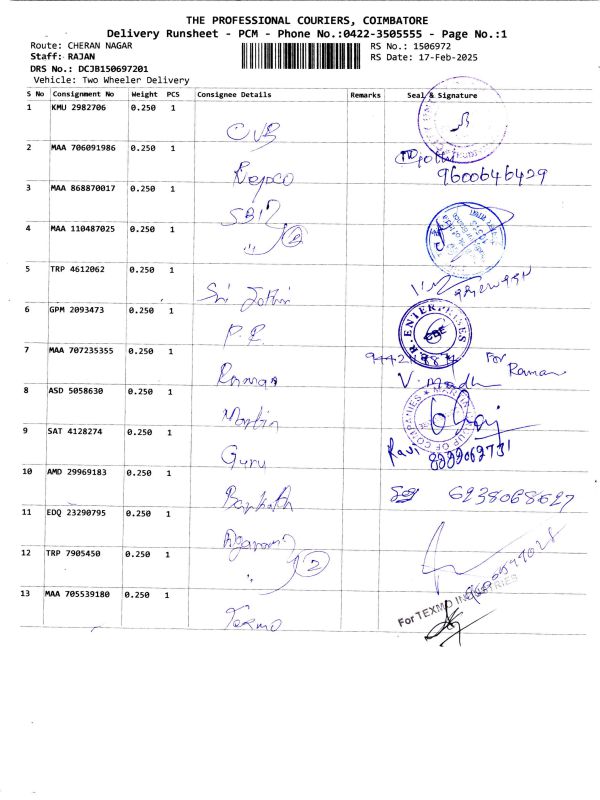 THE PROFESSIONAL COURIERS, COIMBATORE
Delivery Runsheet - PCM - Phone No.:0422-3505555 - Page No.:1
Route: CHERAN NAGAR RS No.: 1506972
Staff: RAJAN RS Date: 17-Feb-2025
DRS No.: DCJB150697201
Vehicle: Two Wheeler Delivery
S No Consignment No Weight PCS Consignee Details Remarks Seal & Signature
1 KMU 2982706 0.250 1 CUB
2 MAA 706091986 0.250 1 Repco 9600646429
3 MAA 868870017 0.250 1 SBI
4 MAA 110487025 0.250 1 " 2
5 TRP 4612062 0.250 1 Sri Jothi
6 GPM 2093473 0.250 1 P.R. R.ENTERPRISES CBE
7 MAA 707235355 0.250 1 Raman For Raman
8 ASD 5058630 0.250 1 Martin
9 SAT 4128274 0.250 1 Guru Ravi
10 AMD 29969183 0.250 1 6238068627
11 EDQ 23290795 0.250 1
12 TRP 7905450 0.250 1 " 2
13 MAA 705539180 0.250 1 Texmo For TEXMO INDUSTRIES